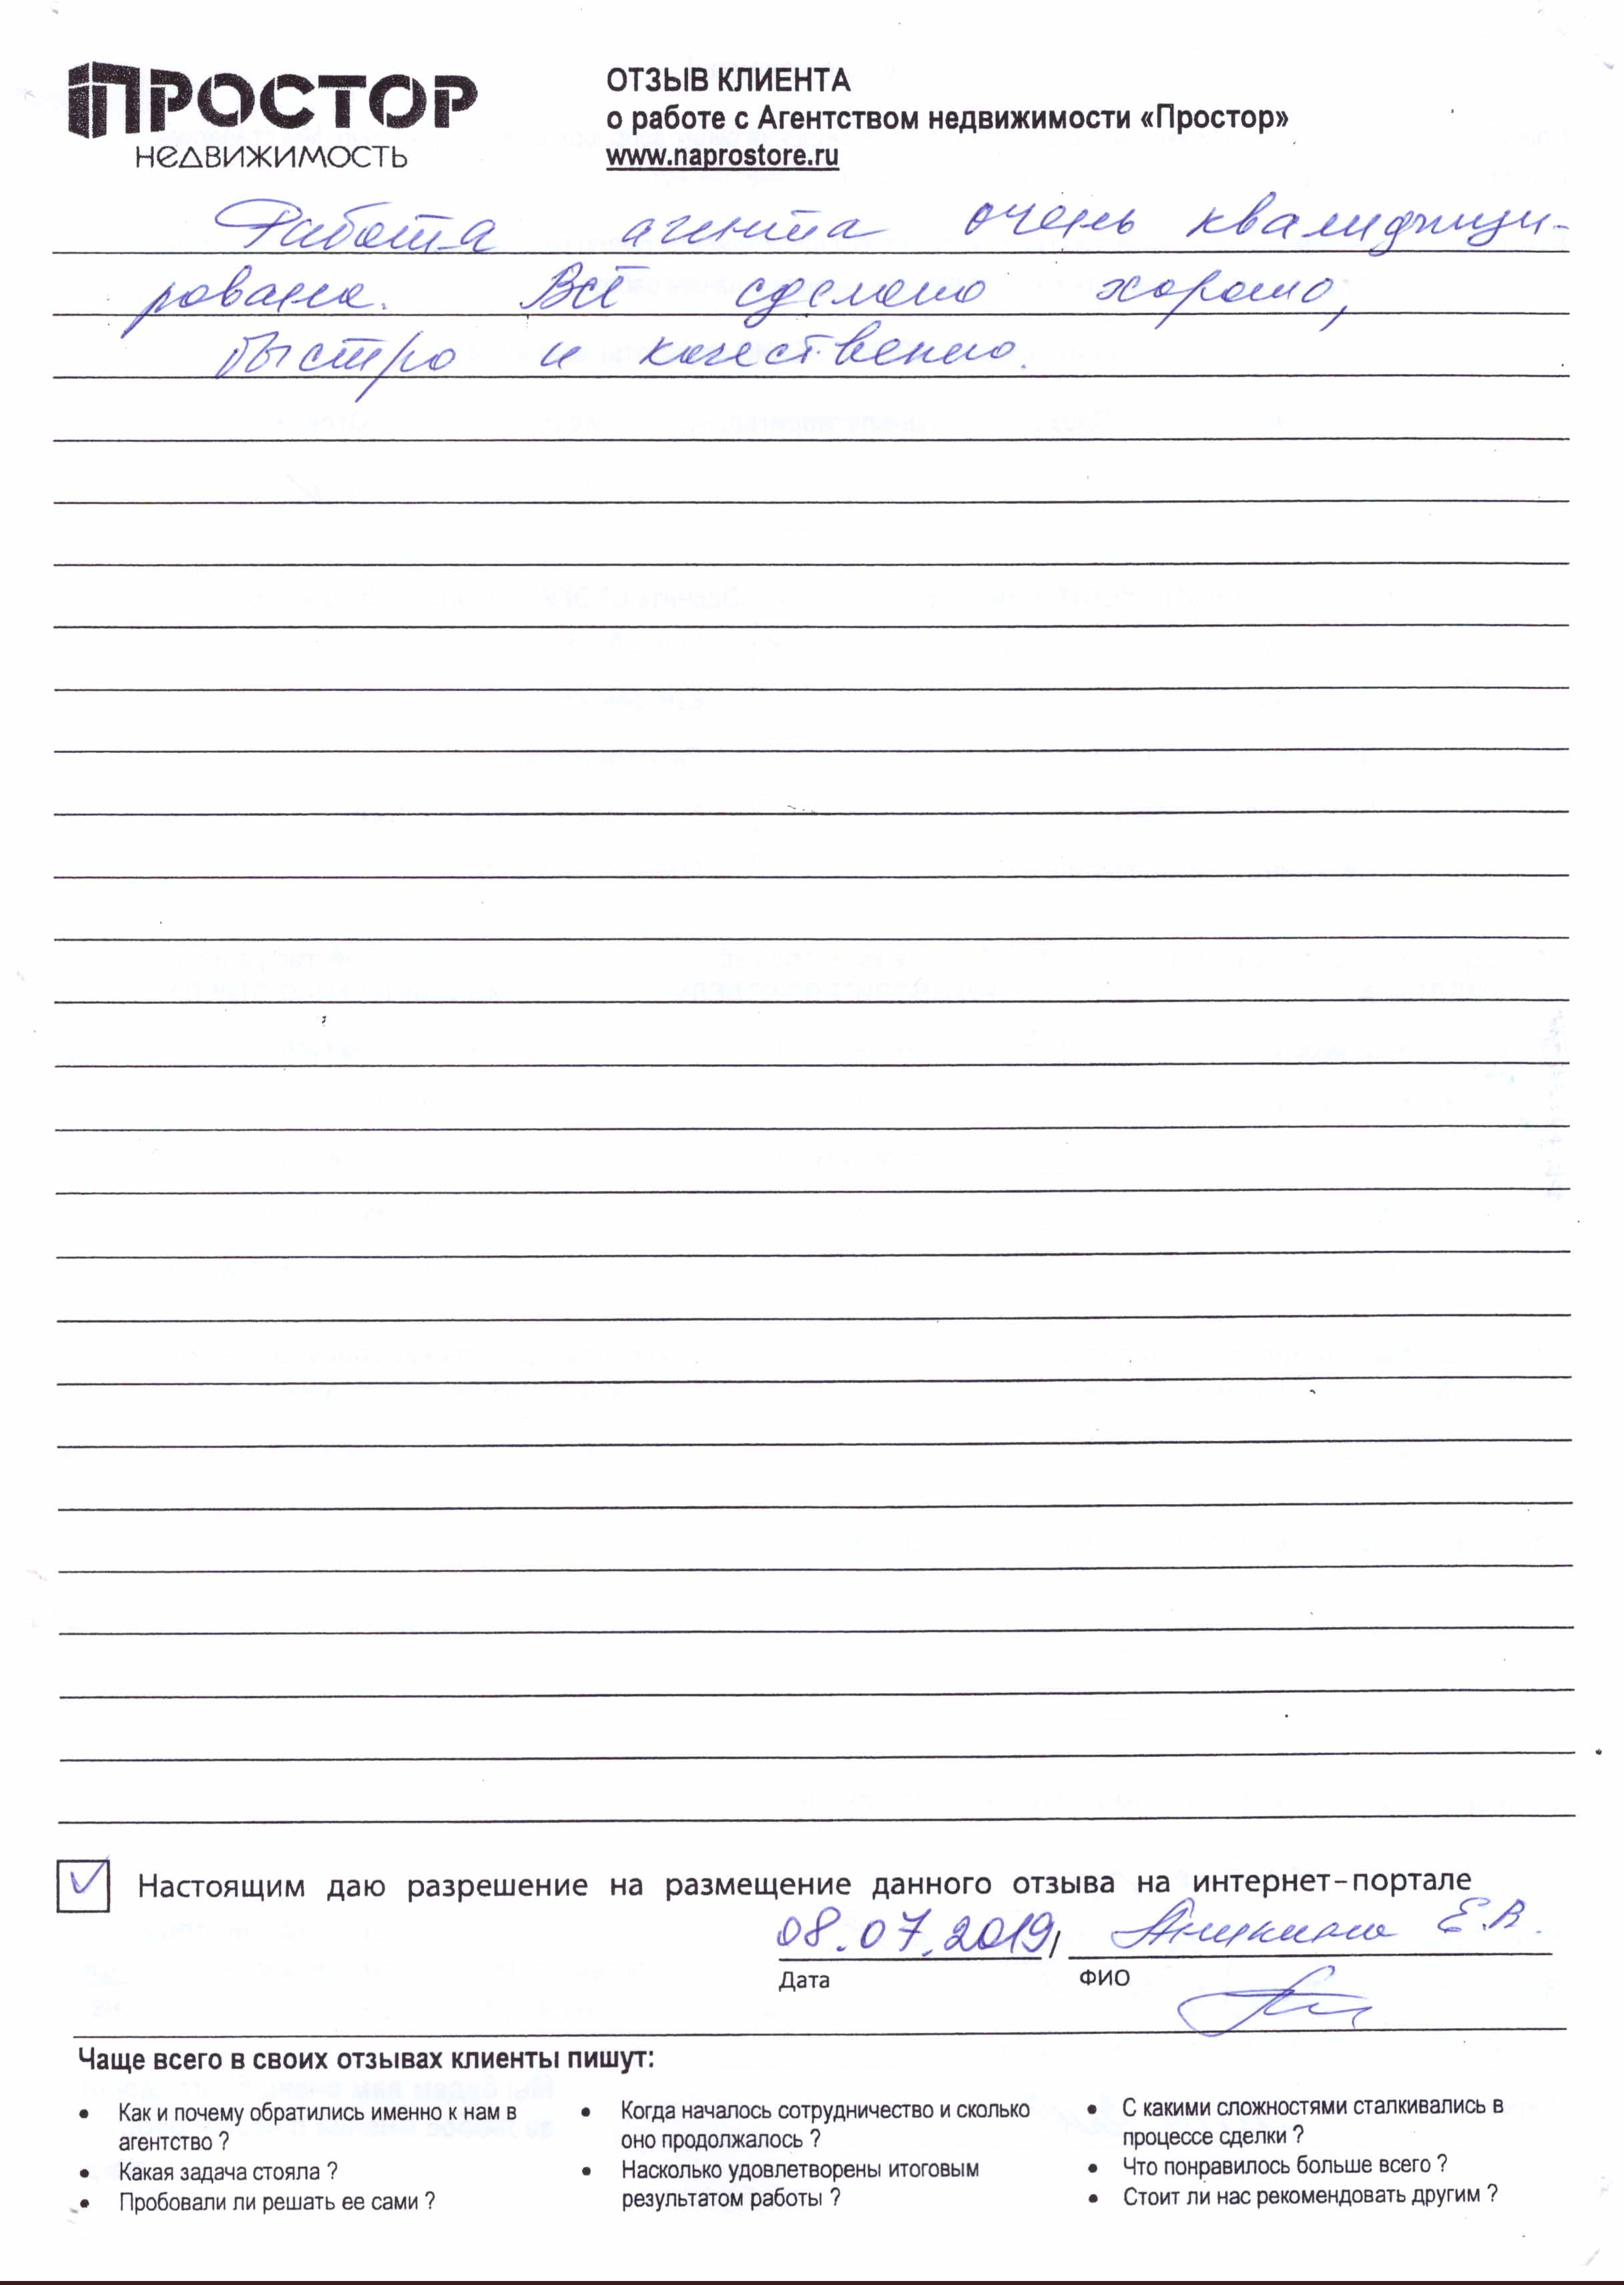 ПРОСТОР
НЕДВИЖИМОСТЬ
ОТЗЫВ КЛИЕНТА
о работе с Агентством недвижимости «Простор»
www.naprostore.ru
Работа агента очень квалифици-
рована. Всё сделано хорошо,
быстро и качественно.
Настоящим даю разрешение на размещение данного отзыва на интернет-портале
08.07.2019/ Аникина Е.В.
Дата ФИО
Чаще всего в своих отзывах клиенты пишут:
• Как и почему обратились именно к нам в
агентство ?
• Какая задача стояла ?
• Пробовали ли решать ее сами ?
• Когда началось сотрудничество и сколько
оно продолжалось ?
• Насколько удовлетворены итоговым
результатом работы ?
• С какими сложностями сталкивались в
процессе сделки ?
• Что понравилось больше всего ?
• Стоит ли нас рекомендовать другим ?